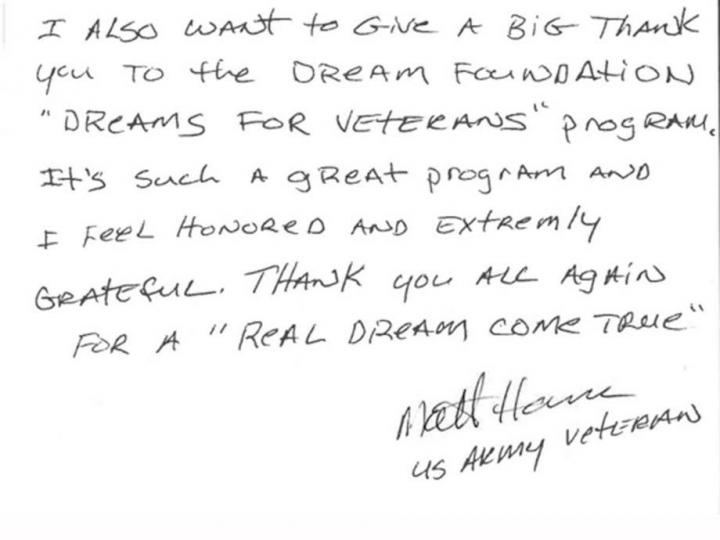 I ALSO WANT to GiVe A BiG THANK
you TO the DReAM FOUNDAtiON
"DReAMS FOR VEteRANS" progRAM.
It's Such A gReAt progrAm AND
I FeeL HONOReD AND EXtRemly
GRATEfUL. THANK you ALL AgAiN
FOR A "ReAL DReAm COMe TRUe"
Matt
US ARmy VeteRAN